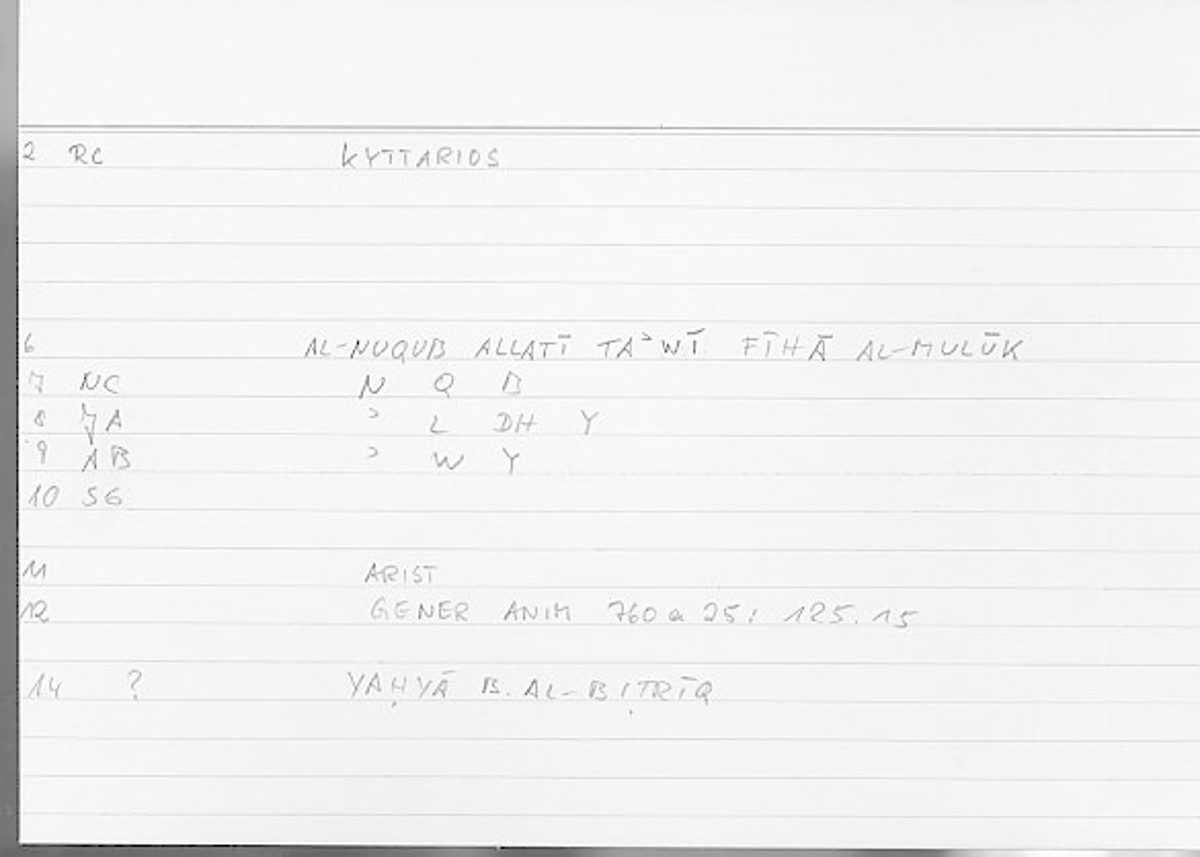 2 RC KYTTARIOS
6 AL-NUQUB ALLATĪ TAʾWĪ FĪHĀ AL-MULŪK
7 NC N Q B
8 JA ʾ L DH Y
9 AB ʾ W Y
10 SG
11 ARIST
12 GENER ANIM 760 a 25: 125.15
14 ? YAḤYĀ B. AL-BIṬRĪQ